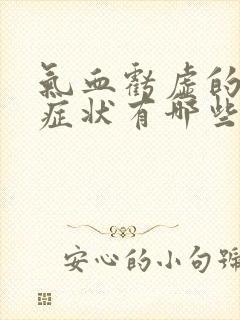 氣血虧虛的
症狀有哪些
安心的小句號